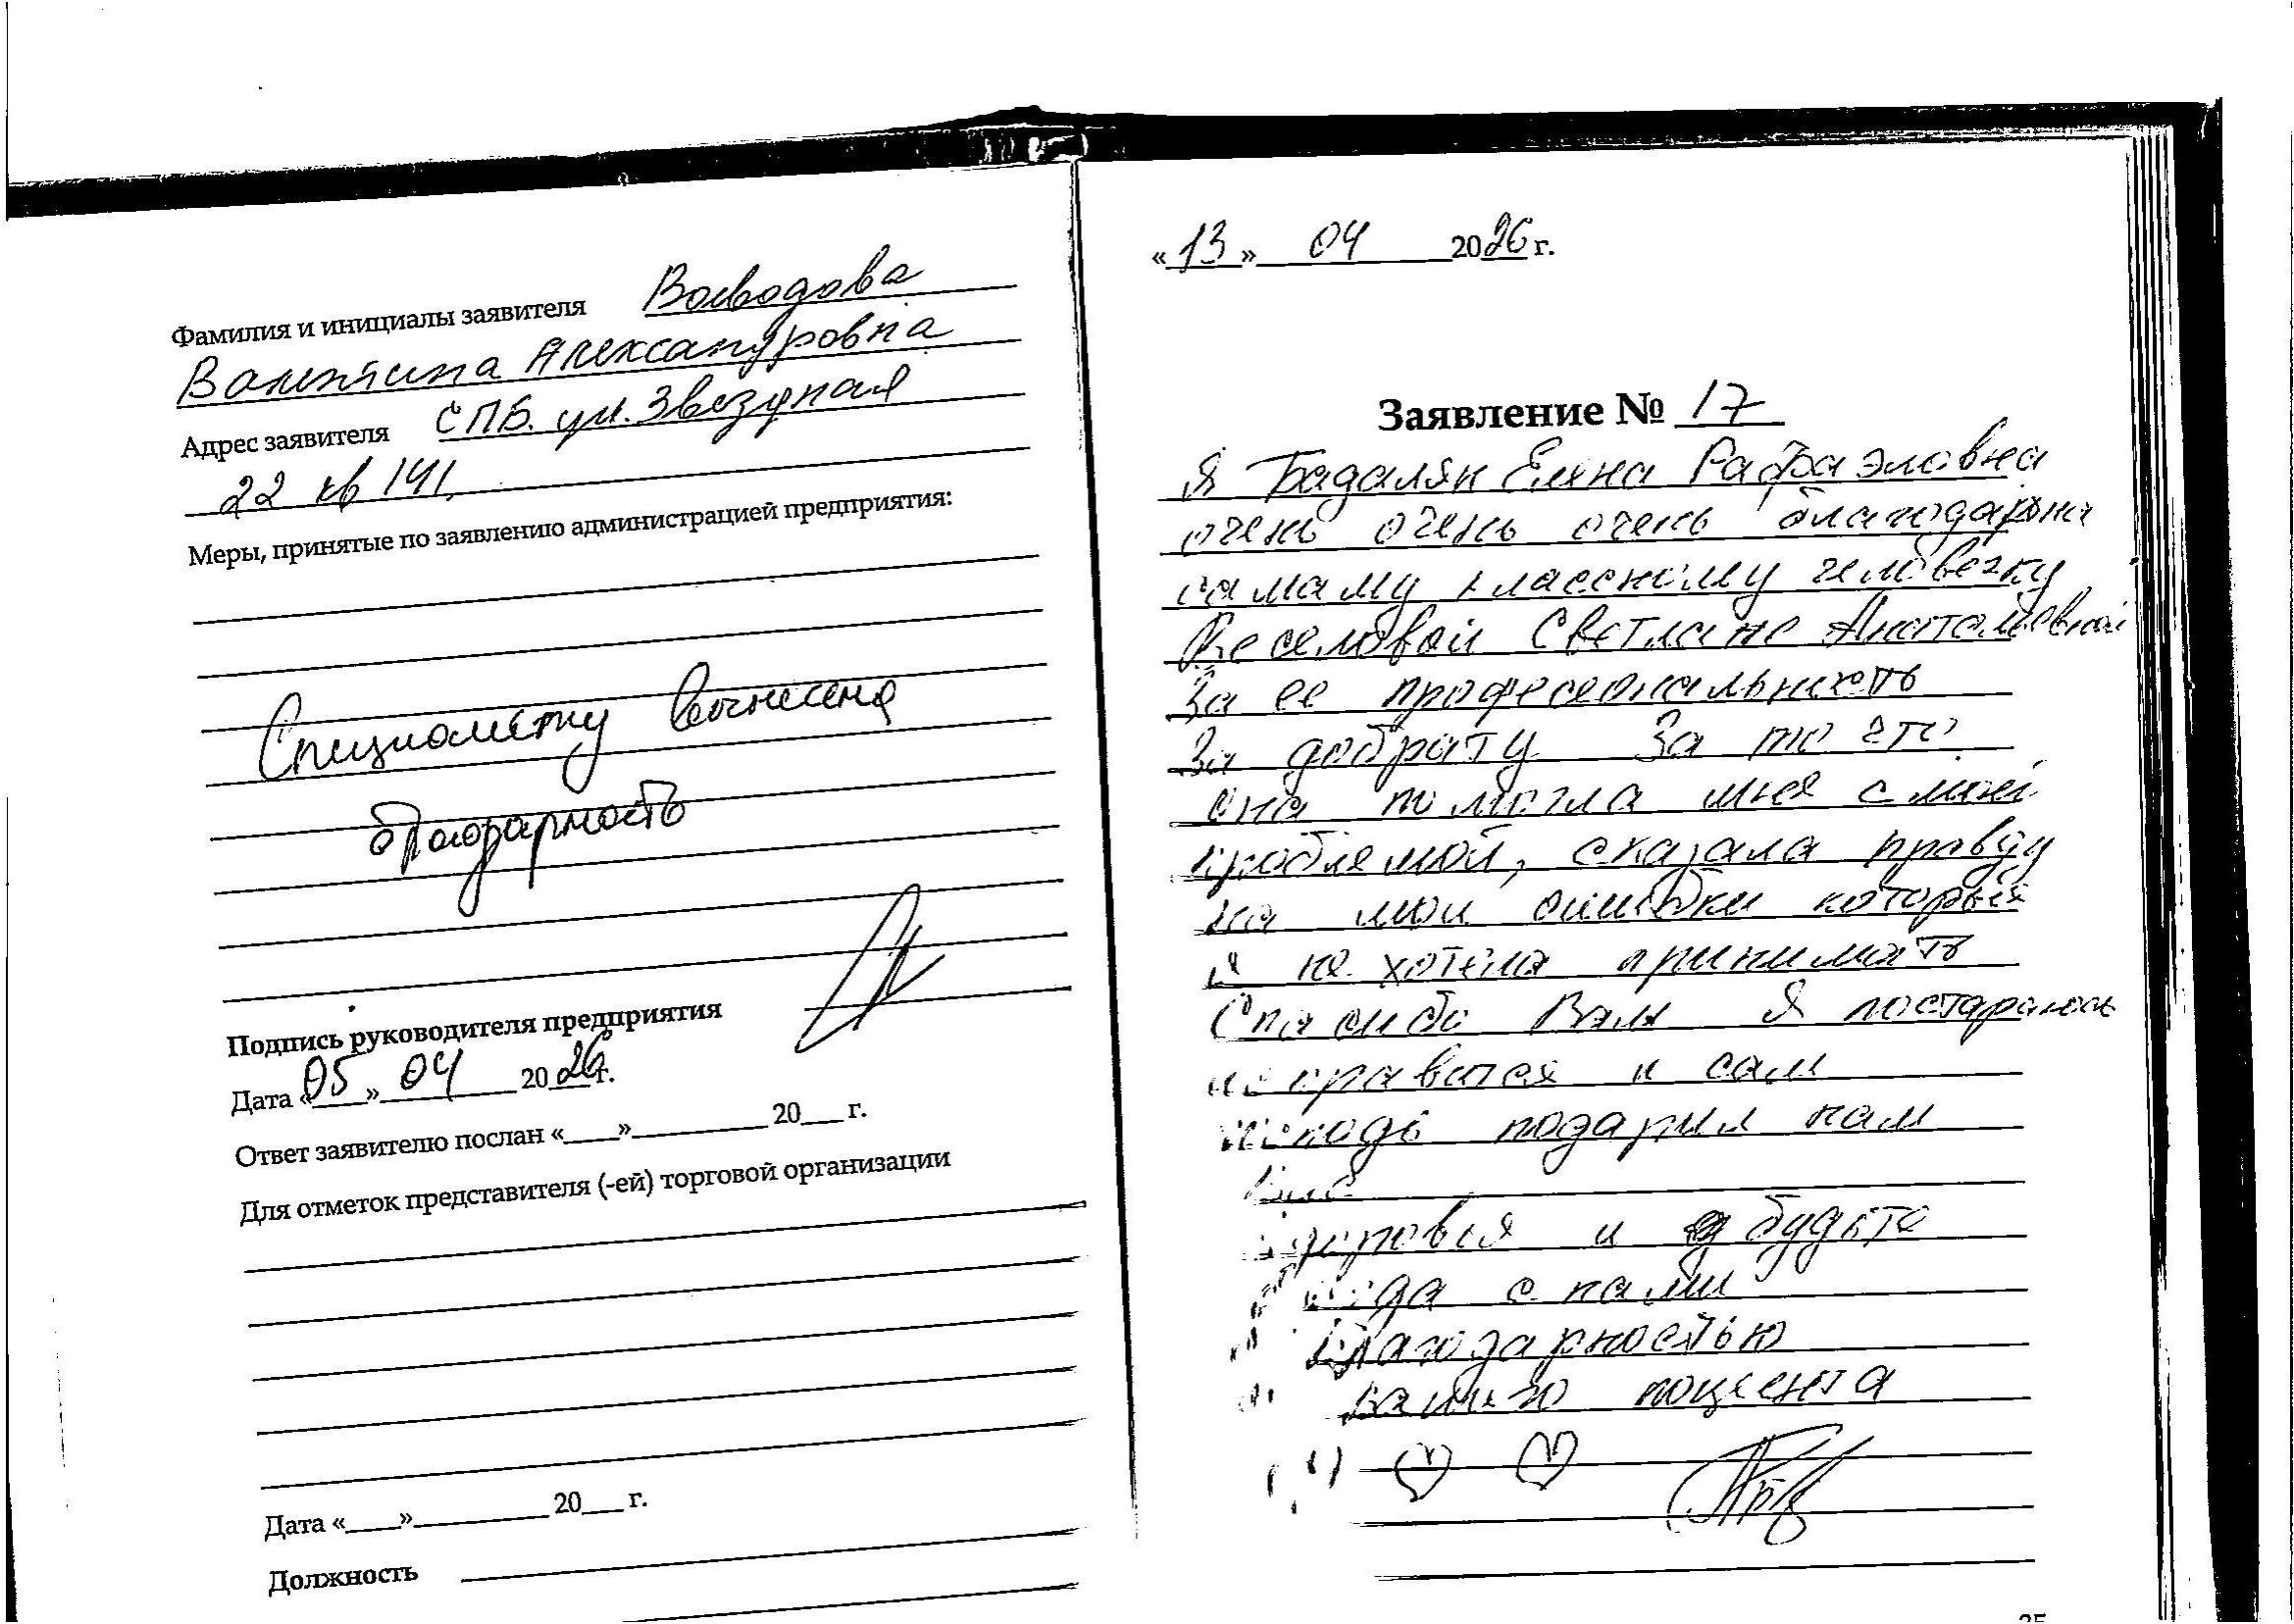 Фамилия и инициалы заявителя Воеводова
Валентина Александровна
Адрес заявителя СПБ. ул. Звездная
22 кв 141.
Меры, принятые по заявлению администрацией предприятия:
Специалисту вынесена
благодарность
Подпись руководителя предприятия
Дата «05» 04 2026 г.
Ответ заявителю послан «___»_________ 20___ г.
Для отметок представителя (-ей) торговой организации
Дата «___»_________ 20___ г.
Должность
«13» 04 2026 г.
Заявление № 17
Я Бадалян Елена Рафаэловна
очень очень очень благодарна
самаму классному человечку
Веселовой Светлане Анатольевной
За ее професеональность
За доброту За то что
она помогла мне с моей
проблемой, сказала правду
на мои ошибки которые
я не хотела принимать
Спасибо Вам Я постараюсь
исправится и сам
подарил нам
здоровья и будьте
с нами
благодарностью
вашего поциента
35